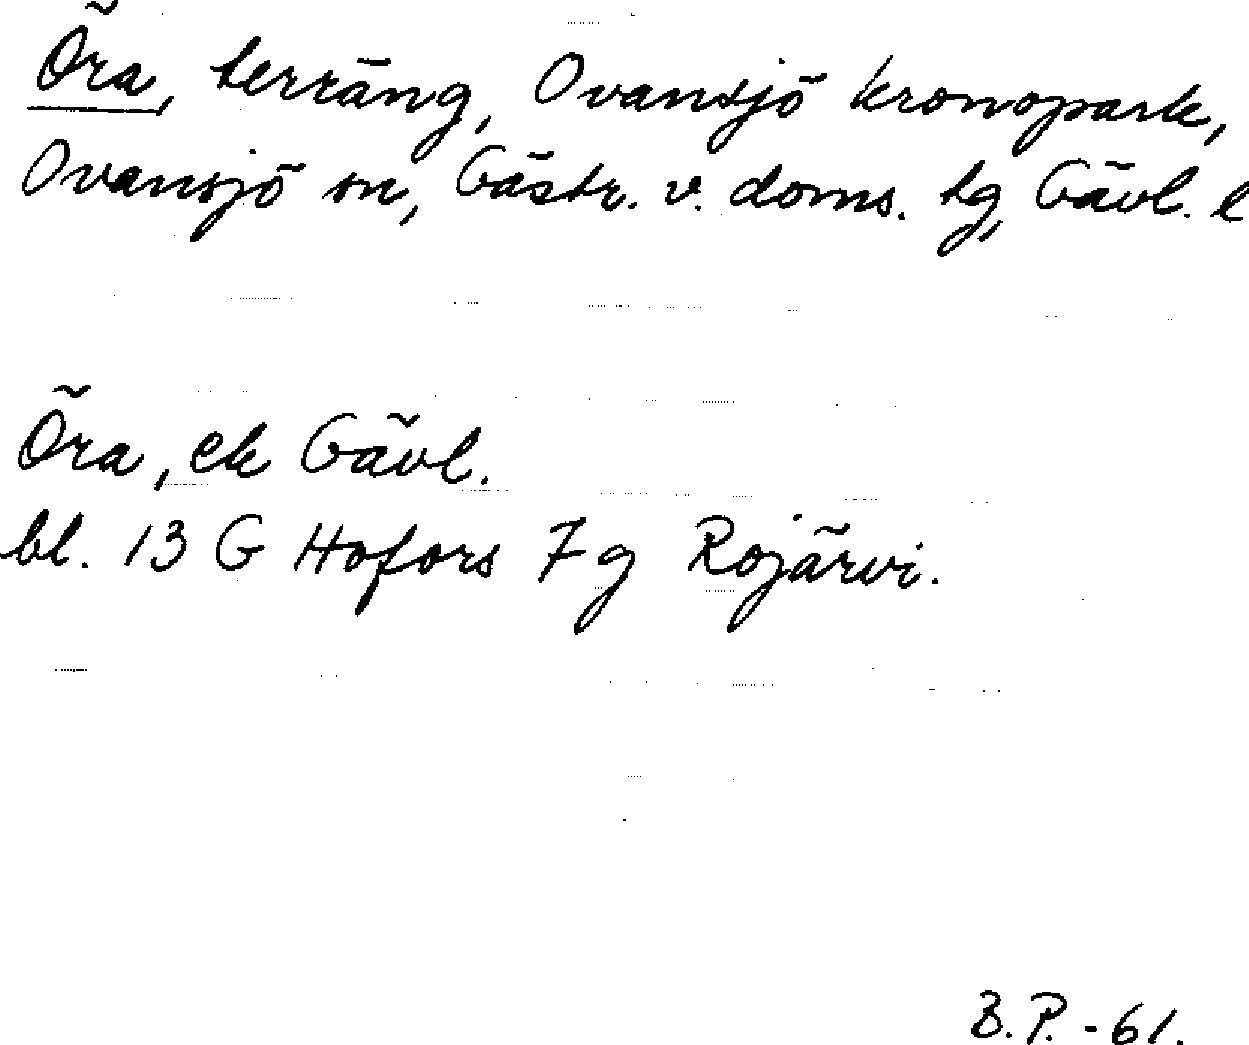 Öra, terräng, Ovansjö kronopark,
Ovansjö sn, Gästr. v. doms. tg, Gävl. l
Öra, ek Gävl.
bl. 13 G Hofors 7 g Rojärvi.
B.P. -61.